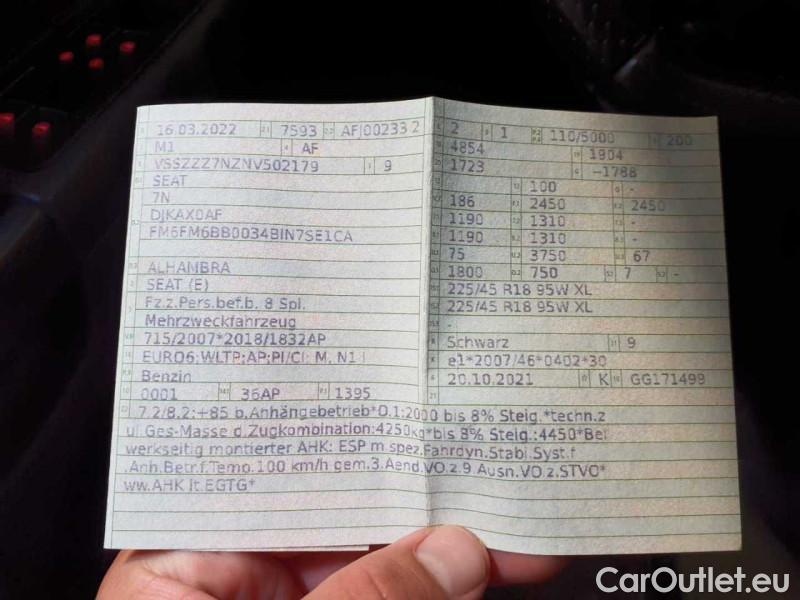 16.03.2022 7593 AF|00233 2
M1 AF
VSSZZZ7NZNV502179 9
SEAT
7N
DJKAX0AF
FM6FM6BB0034BIN7SE1CA
ALHAMBRA
SEAT (E)
Fz.z.Pers.bef.b. 8 Spl.
Mehrzweckfahrzeug
715/2007*2018/1832AP
EURO6;WLTP;AP;PI/CI; M, N1 I
Benzin
0001 36AP 1395
2 1 110/5000 200
4854 1904
1723 –1788
100 -
186 2450 2450
1190 1310 -
1190 1310 -
75 3750 67
1800 750 7 -
225/45 R18 95W XL
225/45 R18 95W XL
-
Schwarz 9
e1*2007/46*0402*30
20.10.2021 K GG171499
7.2/8.2:+85 b.Anhängebetrieb*O.1:2000 bis 8% Steig.*techn.z
ul.Ges-Masse d.Zugkombination:4250kg*bis 8% Steig.:4450*Bei
werkseitig montierter AHK: ESP m.spez.Fahrdyn.Stabi.Syst.f
.Anh.Betr.f.Temp.100 km/h gem.3.Aend.VO.z.9 Ausn.VO.z.STVO*
ww.AHK lt.EGTG*
CarOutlet.eu